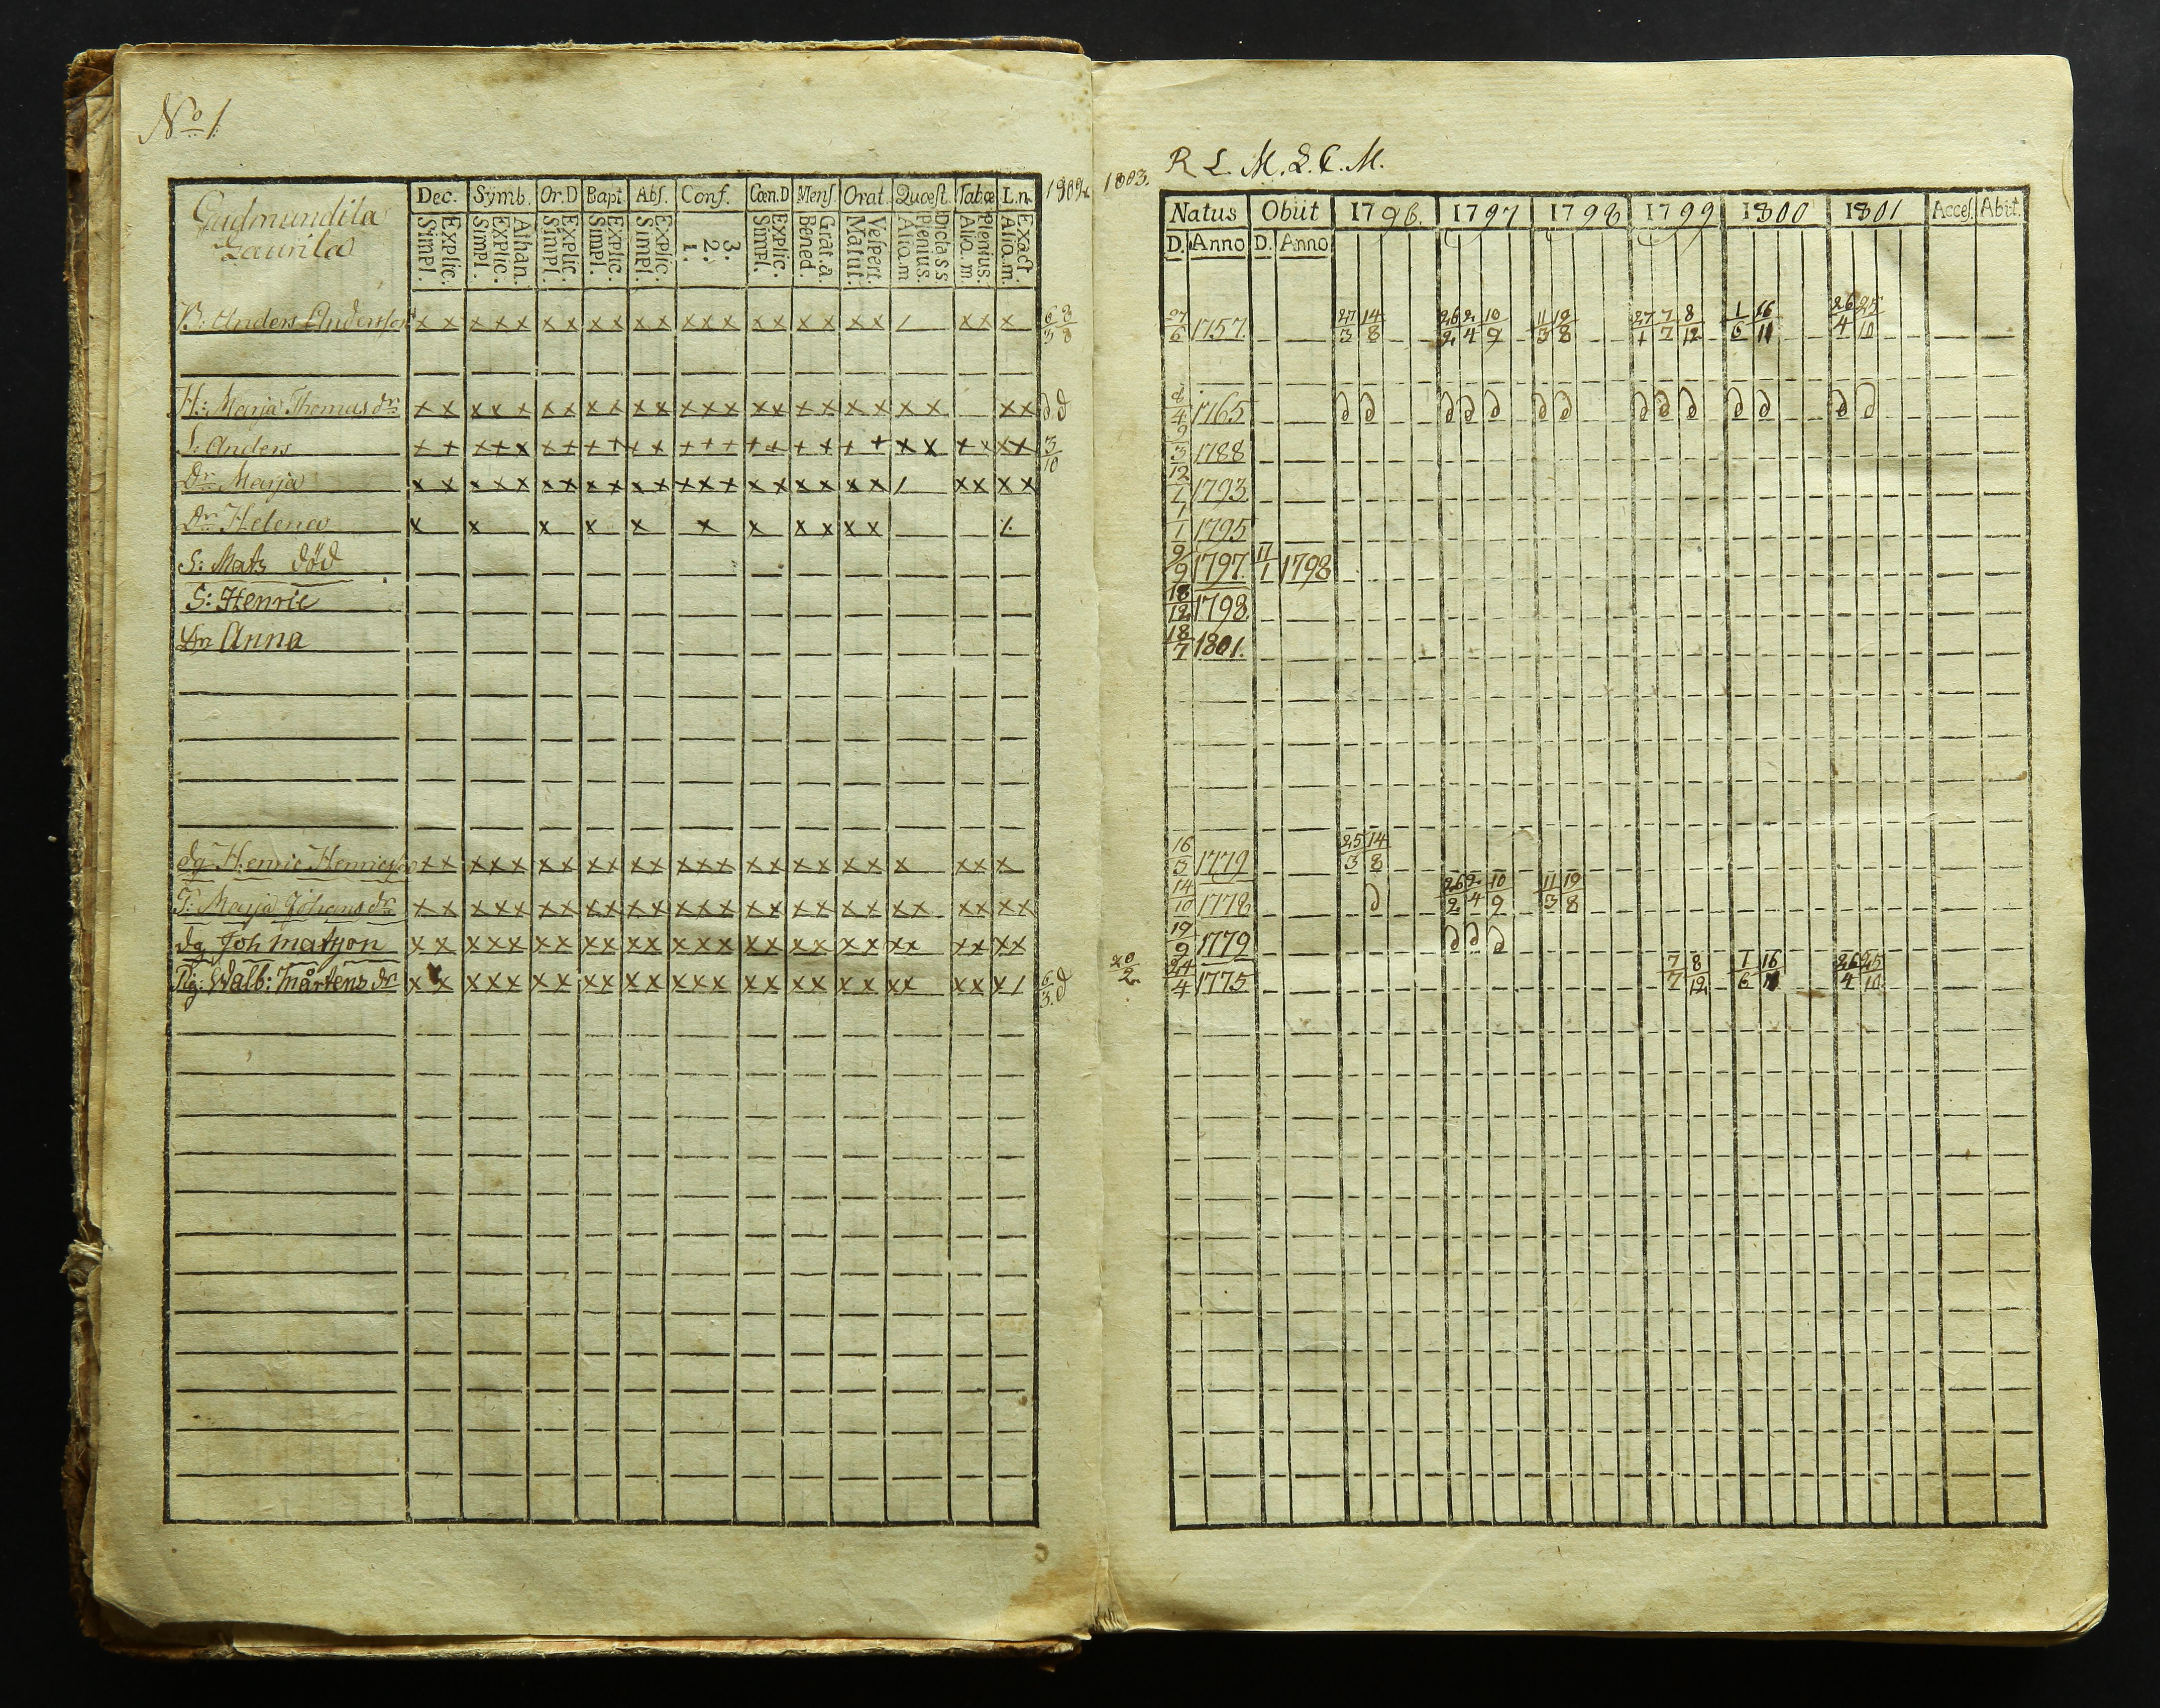 No 1
Gudmundila
Laurila
Dec. Symb. Or.D Bapt. Abs. Conf. Cœn.D Mens. Orat. Quæst. Tabæ L.n.
Explic. Simpl.
Athan. Explic. Simpl.
Explic. Simpl.
Explic. Simpl.
Explic. Simpl.
3. 2. 1.
Explic. Simpl.
Grat. a. Bened.
Vespert. Matut.
Dicta s s Plenius. Aliq. m.
Plenius. Aliq. m.
Exact. Aliq. m.
B: Anders Andersson x x x x x x x x x x x x x x x x x x x x / x x x 6/3 3/8
H: Marja Thomas dr x x x x x x x x x x x x x x x x x x x x x x x x ∂ ∂
S: Anders + + + + x + + + + + + + + + + + + + + + x x + x x x 3/10
Dr Marja x x x x x x x x x x x x x x x x x x x x / x x x x
Dr Helena x x x x x x x x x x x
S: Mats död
S: Henric
Dr Anna
dg Henric Henricsson x x x x x x x x x x x x x x x x x x x x x x x x
P: Marja Johans dr x x x x x x x x x x x x x x x x x x x x x x x x x x
dg Joh Matsson x x x x x x x x x x x x x x x x x x x x x x x x x x
Pig: Walb: Mårtens dr x x x x x x x x x x x x x x x x x x x x x x x x x / 6/3 ∂
1803.
R L. M. L. C. M.
Natus Obiit 1796. 1797 1798 1799 1800 1801 Acces. Abit.
D. Anno D. Anno
27/6 1757. 27/3 14/8 26/2 2/4 10/9 11/3 19/8 27/1 7/7 8/12 1/6 16/11 26/4 25/10
8/4 1765 ∂ ∂ ∂ ∂ ∂ ∂ ∂ ∂ ∂ ∂ ∂ ∂ ∂ ∂
9/3 1788
12/1 1793
1/1 1795
9/9 1797. 11/1 1798
18/12 1798
18/7 1801.
16/3 1779 25/3 14/8
14/10 1778 ∂ 26/2 2/4 10/9 11/3 19/8
19/9 1779 ∂ ∂ ∂
20/2 24/4 1775 7/7 8/12 1/6 16/11 26/4 25/10